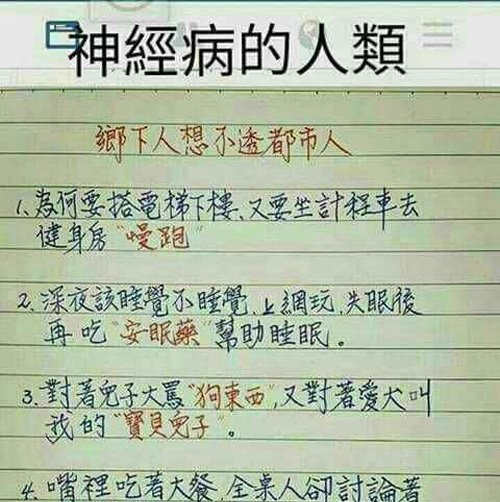 神經病的人類
鄉下人想不透都市人
1、為何要搭電梯下樓、又要坐計程車去
健身房“慢跑”
2、深夜該睡覺不睡覺、上網玩、失眠後
再吃“安眠藥”幫助睡眠。
3、對著兒子大罵“狗東西”,又對著愛犬叫
我的“寶貝兒子”。
4、嘴裡吃著大餐、全桌人卻討論著